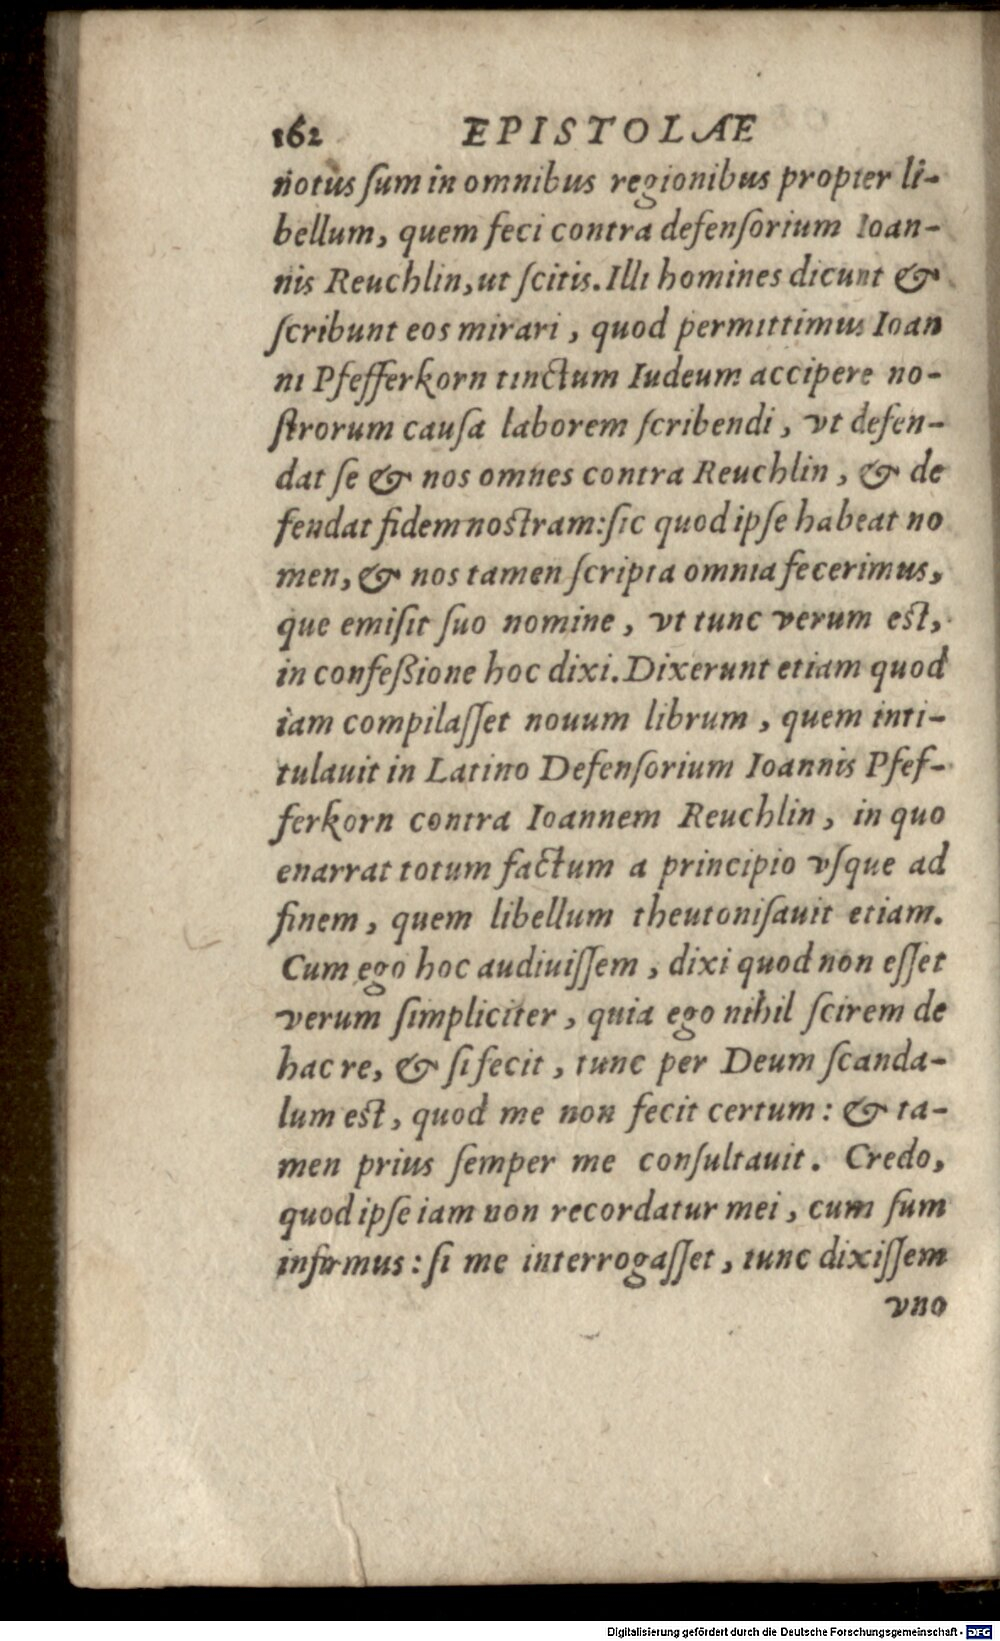 162 EPISTOLÆ
notus ſum in omnibus regionibus propter li-
bellum, quem feci contra defenſorium Ioan-
nis Reuchlin, ut ſcitis. Illi homines dicunt &
ſcribunt eos mirari, quod permittimus Ioan
ni Pfefferkorn tinctum Iudeum accipere no-
ſtrorum cauſa laborem ſcribendi, vt defen-
dat ſe & nos omnes contra Reuchlin, & de
feudat fidem noſtram: ſic quod ipſe habeat no
men, & nos tamen ſcripta omnia fecerimus,
que emiſit ſuo nomine, vt tunc verum eſt,
in confeßione hoc dixi. Dixerunt etiam quod
iam compilaſſet nouum librum, quem inti-
tulauit in Latino Defenſorium Ioannis Pfef-
ferkorn contra Ioannem Reuchlin, in quo
enarrat totum factum a principio vſque ad
finem, quem libellum theutoniſauit etiam.
Cum ego hoc audiuiſſem, dixi quod non eſſet
verum ſimpliciter, quia ego nihil ſcirem de
hac re, & ſi fecit, tunc per Deum ſcanda-
lum eſt, quod me non fecit certum: & ta-
men prius ſemper me conſultauit. Credo,
quod ipſe iam non recordatur mei, cum ſum
infirmus: ſi me interrogaſſet, tunc dixiſſem
vno
Digitalisierung gefördert durch die Deutsche Forschungsgemeinschaft - DFG